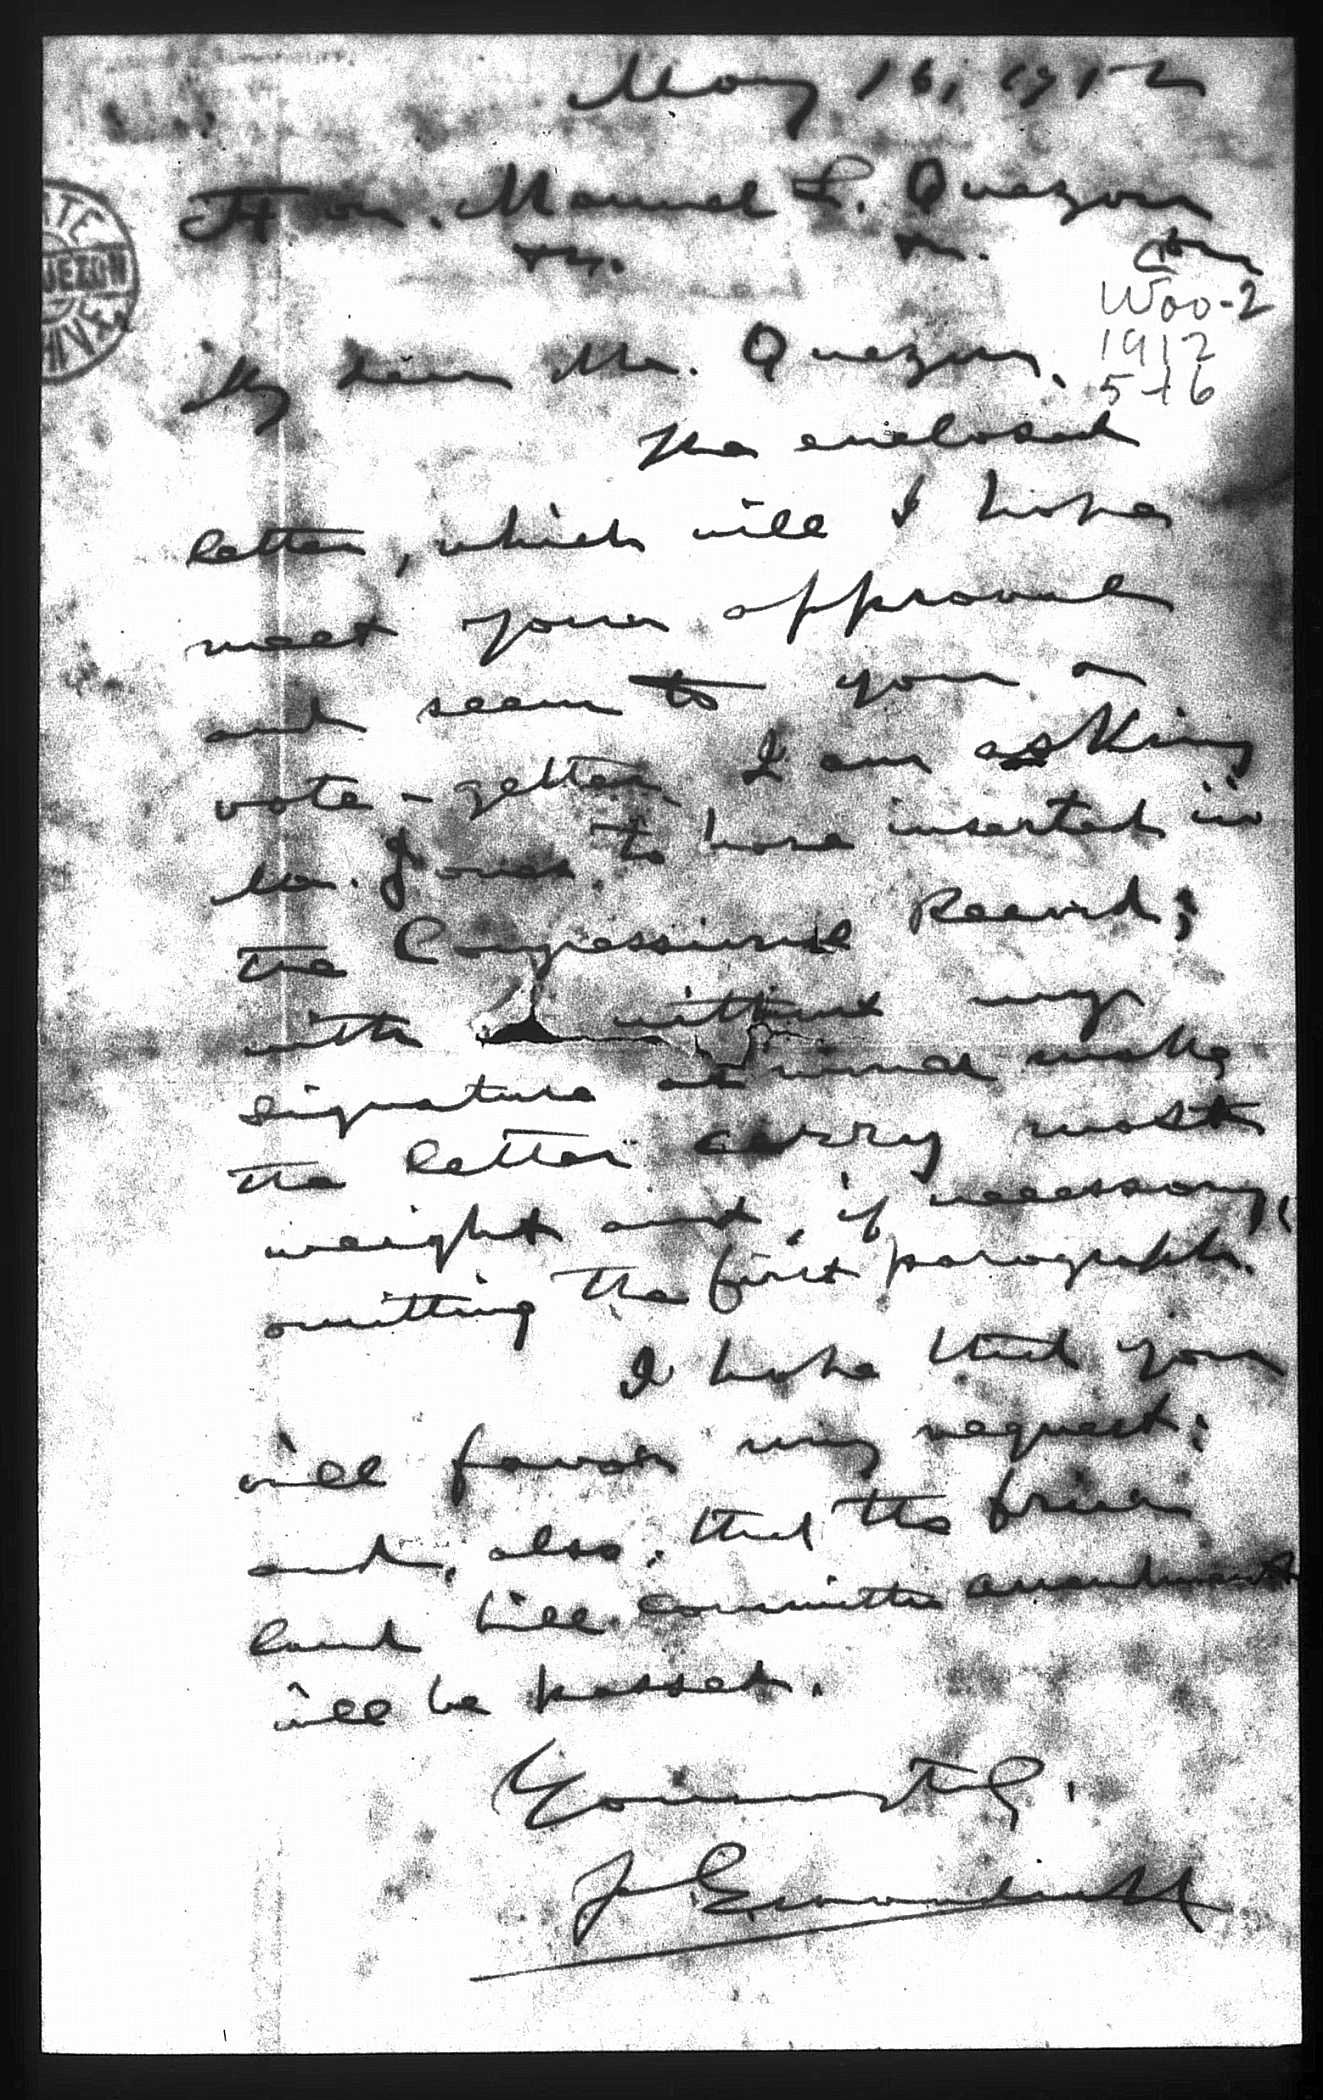 May 16, 1912
Hon. Manuel L. Quezon
Woo-2
1912
5-16
My dear Mr. Quezon.
The enclosed
letter, which will I hope
meet your approval
and seem to you a
vote-getter, I am asking
Mr. Jones to have inserted in
the Congressional Record;
with without my
signature as would make
the letter carry most
weight and, if necessary,
omitting the first paragraph.
I hope that you
will favor my request;
and, also, that the friar
land bill committee amendment
will be passed.
Yours truly,